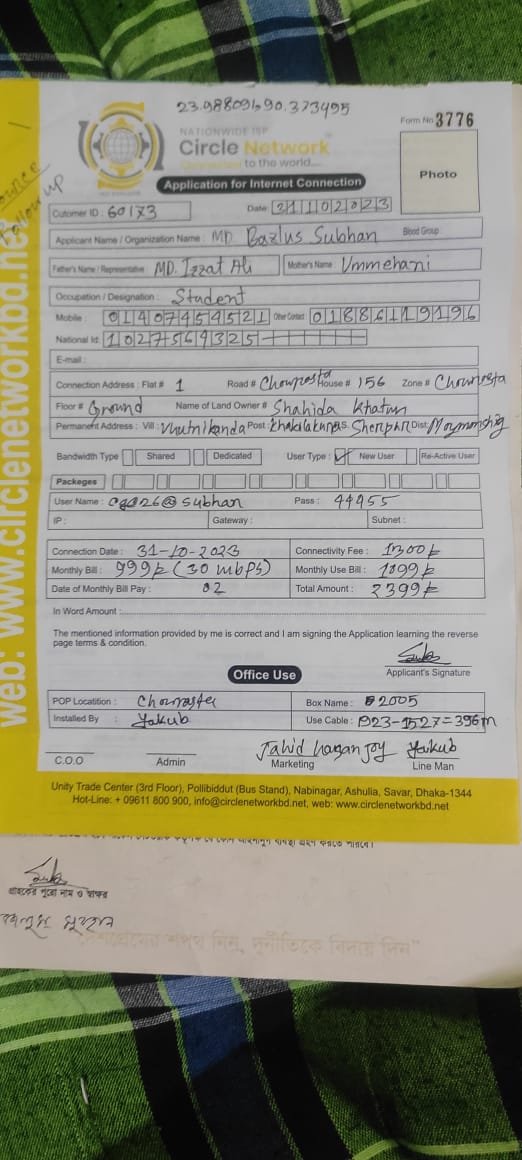 23.98809690.373495
Form No 3776
NATIONWIDE ISP
Circle Network
Connected to the world....
Photo
Application for Internet Connection
Cutomer ID : 60173 Date: 31102023
Applicant Name / Organization Name : MD Bazlus Subhan Blood Group :
Father's Name / Representative : MD. Izzat Ali Mother's Name : Ummehani
Occupation / Designation : Student
Mobile : 01407454521 Other Contact : 01886119196
National Id: 1027569325
E-mail :
Connection Address : Flat # 1 Road # Chowrasta House # 156 Zone # Chowrasta
Floor # Ground Name of Land Owner # Shahida Khatun
Permanent Address : Vill : Post : P.S. Sherpur Dist:
Bandwidth Type Shared Dedicated User Type : New User Re-Active User
Packeges
User Name : @subhan Pass : 44955
IP : Gateway : Subnet :
Connection Date : 31-10-2023 Connectivity Fee : 1300
Monthly Bill : 999 (30 mbps) Monthly Use Bill : 1099
Date of Monthly Bill Pay : 02 Total Amount : 2399
In Word Amount :
The mentioned information provided by me is correct and I am signing the Application learning the reverse
page terms & condition.
Applicant's Signature
Office Use
POP Locatition : Chowrasta Box Name : 2005
Installed By : Yakub Use Cable : 1923-1527=396m
Jahid hasan joy Yaikub
C.O.O Admin Marketing Line Man
Unity Trade Center (3rd Floor), Pollibiddut (Bus Stand), Nabinagar, Ashulia, Savar, Dhaka-1344
Hot-Line: + 09611 800 900, info@circlenetworkbd.net, web: www.circlenetworkbd.net
web: www.circlenetworkbd.net
Follow up
গ্রাহকের পুরো নাম ও স্বাক্ষর